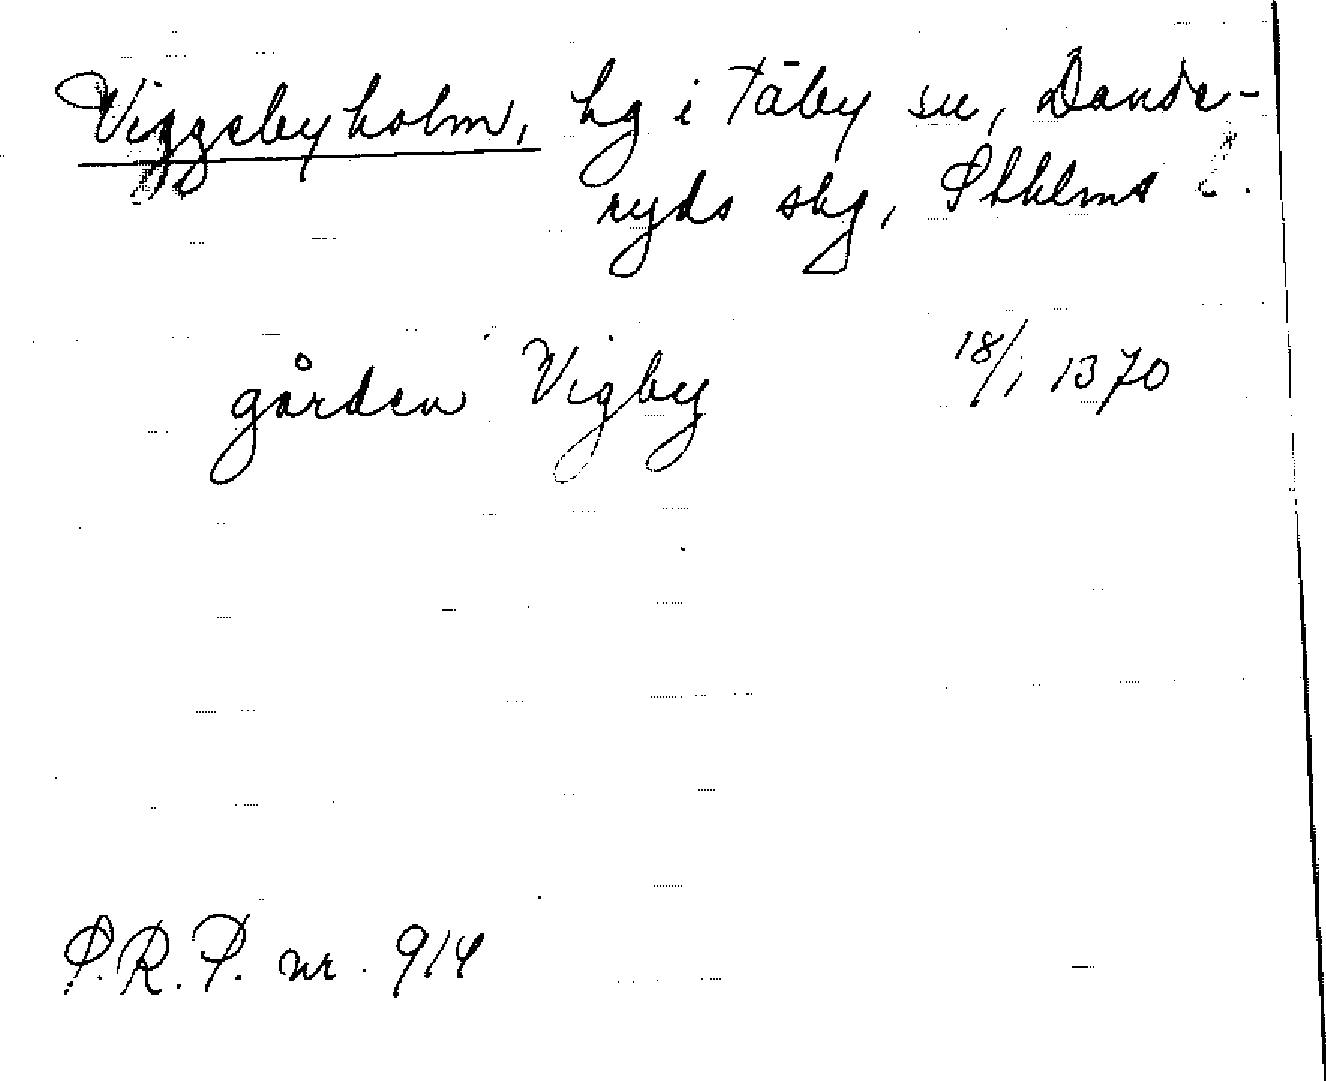 Viggebyholm, hg i Täby sn, Dande-
ryds skg, Sthlms l.
gården Vigby 18/1 1370
S.R.P. nr. 914